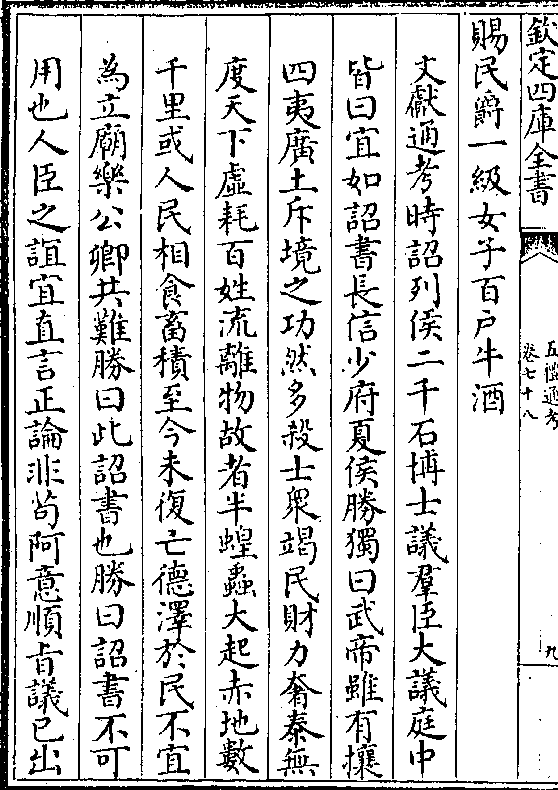 欽定四庫全書
五禮通考
卷七十八
九
賜民爵一級女子百戸牛酒
文獻通考時詔列侯二千石博士議羣臣大議庭中
皆曰宜如詔書長信少府夏侯勝獨曰武帝雖有攘
四夷廣土斥境之功然多殺士衆竭民財力奢泰無
度天下虛耗百姓流離物故者半蝗蟲大起赤地數
千里或人民相食畜積至今未復亡德澤於民不宜
為立廟樂公卿共難勝曰此詔書也勝曰詔書不可
用也人臣之誼宜直言正論非苟阿意順旨議已出